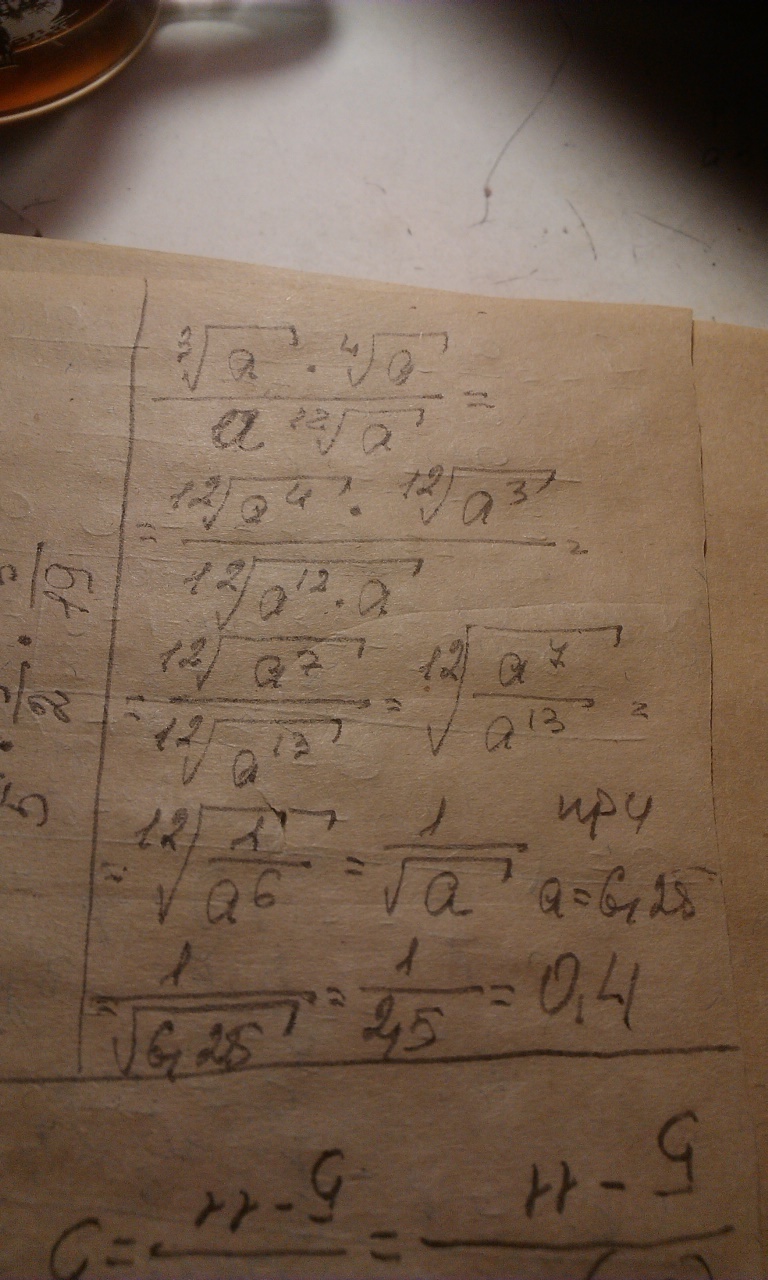 ∛a · ∜a / a ¹²√a =
= ¹²√a⁴ · ¹²√a³ / ¹²√a¹² · a =
= ¹²√a⁷ / ¹²√a¹³ = ¹²√(a⁷ / a¹³) =
= ¹²√(1 / a⁶) = 1 / √a при a = 6,25
= 1 / √6,25 = 1 / 2,5 = 0,4